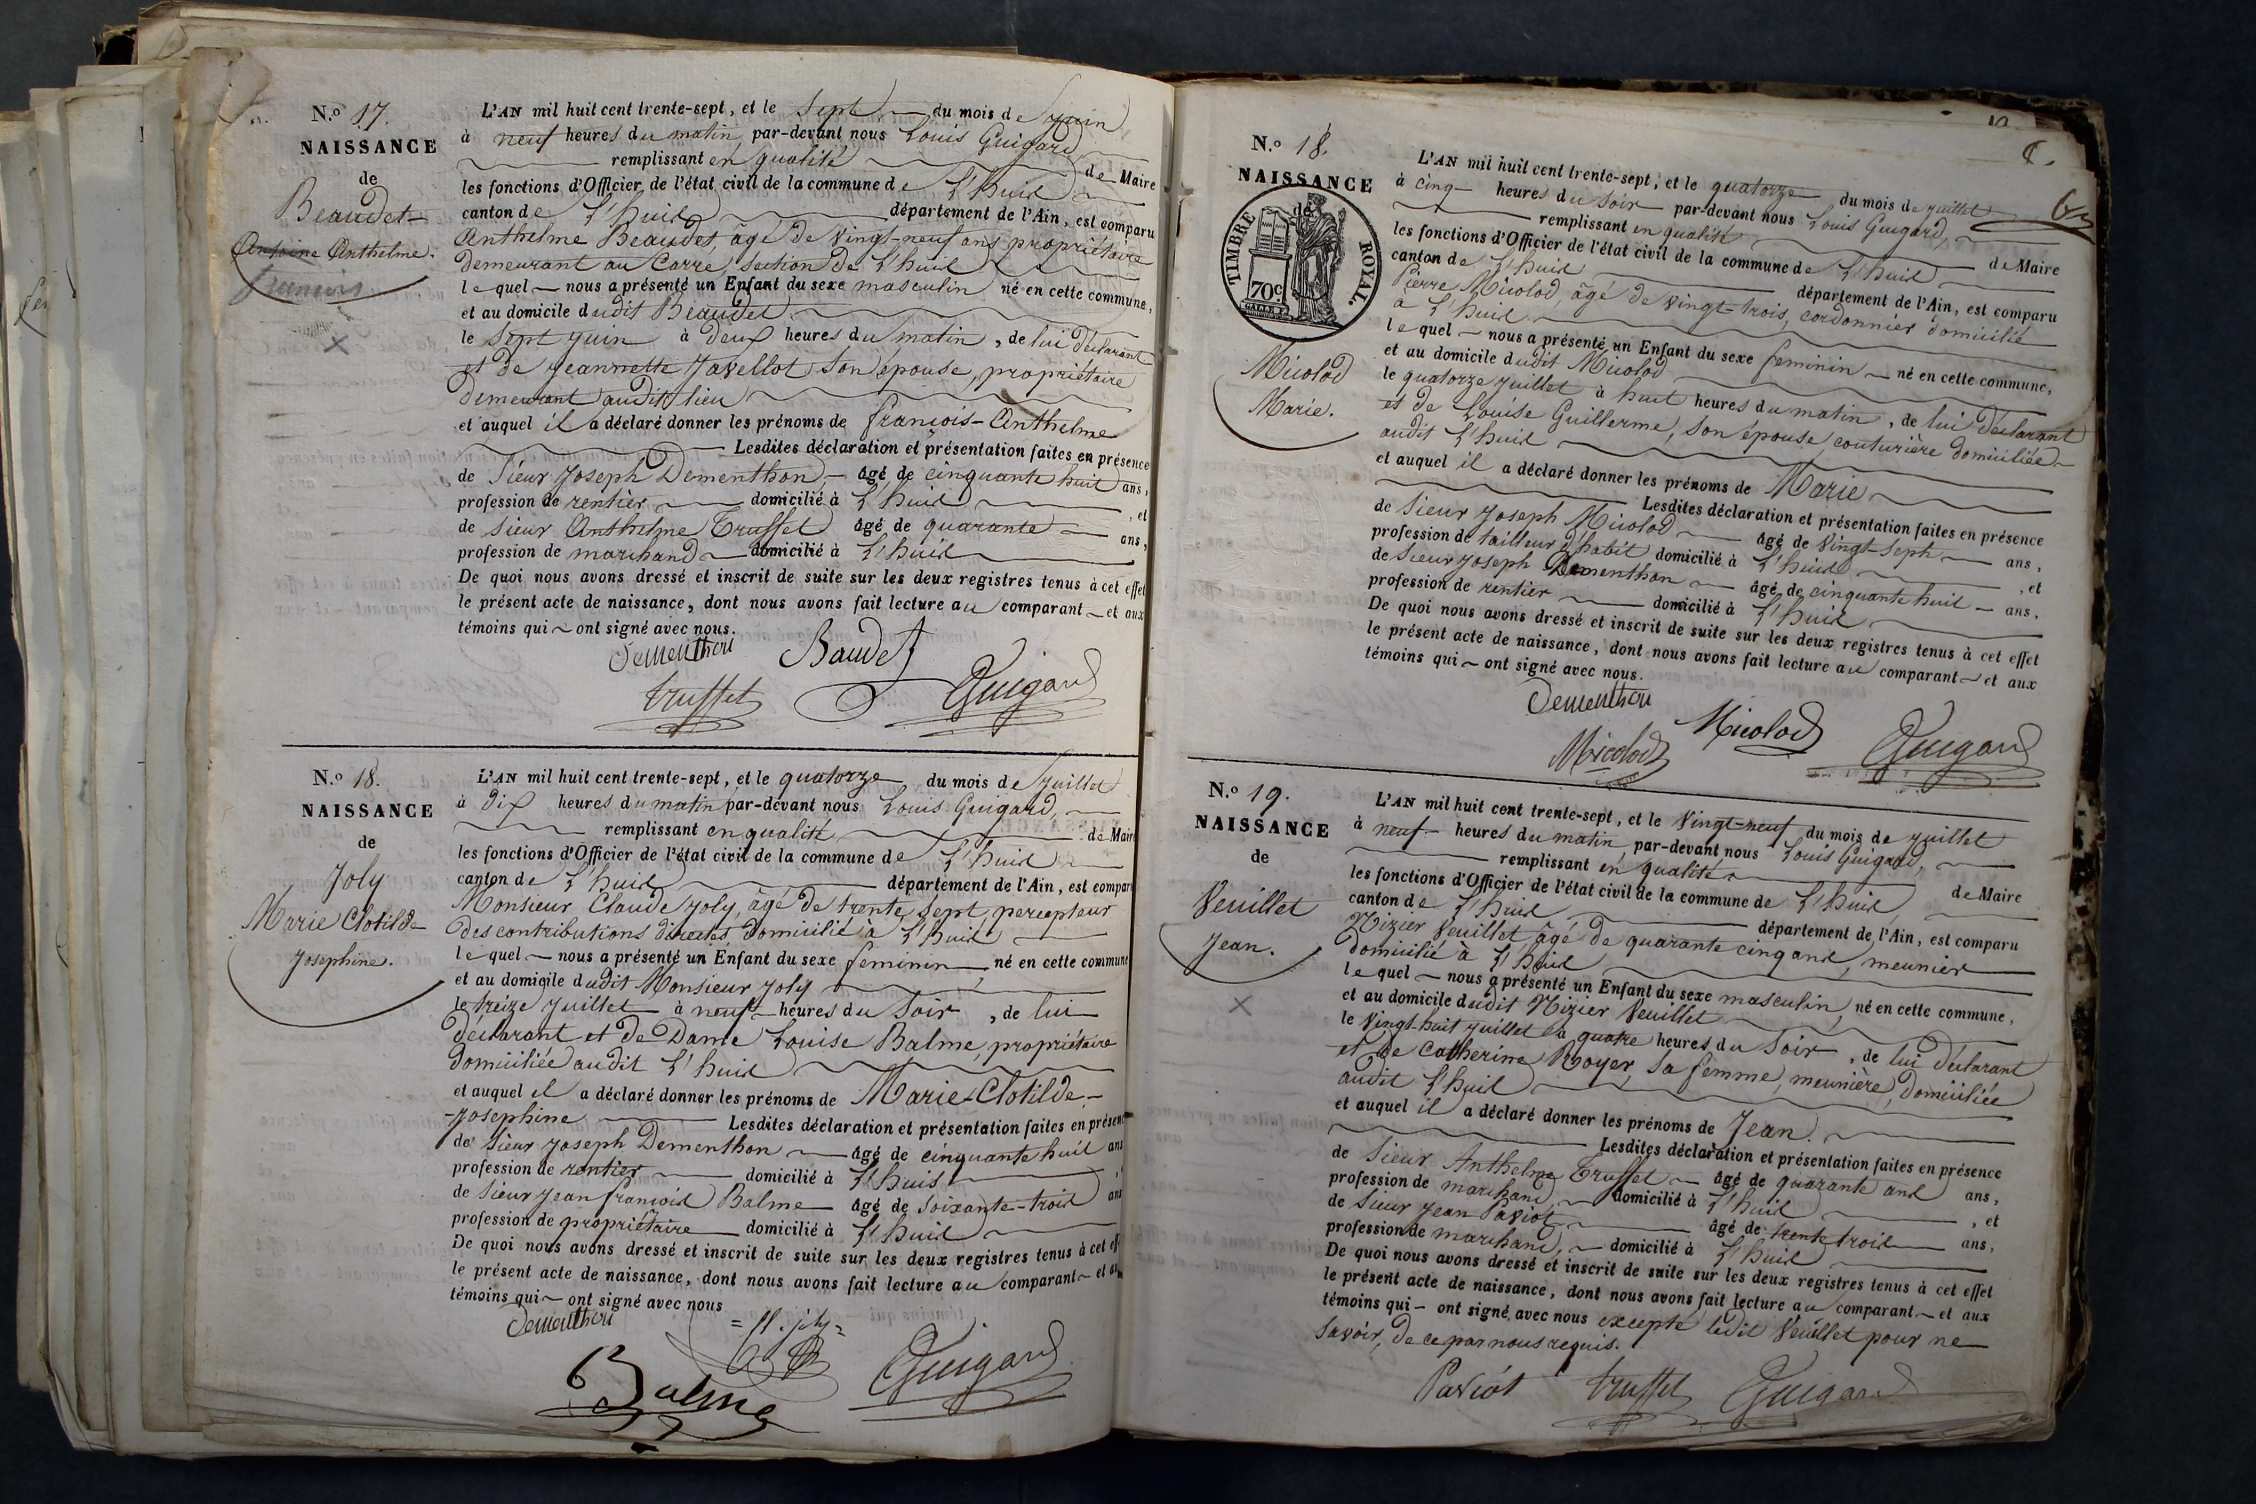 N.º 17.
NAISSANCE
de
Beaudet
Antoine Anthelme.
françois
L'AN mil huit cent trente-sept, et le sept du mois de juin
à neuf heures du matin, par-devant nous Louis Guigard
remplissant en qualité de Maire
les fonctions d'Officier de l'état civil de la commune de L'huis
canton de L'huis département de l'Ain, est comparu
Anthelme Beaudet, âgé de vingt-neuf ans propriétaire
demeurant au Carre, section de L'huis
lequel nous a présenté un Enfant du sexe masculin né en cette commune,
et au domicile dudit Beaudet
le sept juin à deux heures du matin, de lui déclarant
et de Jeannette Javellot son épouse, propriétaire
demeurant audit lieu
et auquel il a déclaré donner les prénoms de françois-Anthelme
Lesdites déclaration et présentation faites en présence
de Sieur Joseph Dementhon, âgé de cinquante huit ans,
profession de rentier domicilié à L'huis , et
de sieur Anthelme Truffet âgé de quarante ans,
profession de marchand domicilié à L'huis
De quoi nous avons dressé et inscrit de suite sur les deux registres tenus à cet effet
le présent acte de naissance, dont nous avons fait lecture au comparant et aux
témoins qui ont signé avec nous.
Dementhon Baudet
truffet Guigard
N.º 18.
NAISSANCE
de
Joly
Marie Clotilde
Josephine.
L'AN mil huit cent trente-sept, et le quatorze du mois de juillet
à dix heures du matin par-devant nous Louis Guigard,
remplissant en qualité de Maire
les fonctions d'Officier de l'état civil de la commune de L'huis
canton de L'huis département de l'Ain, est comparu
Monsieur Claude Joly, âgé de trente sept, percepteur
des contributions directes, domicilié à L'huis
lequel nous a présenté un Enfant du sexe feminin, né en cette commune
et au domicile dudit Monsieur Joly
le treize juillet à neuf heures du soir, de lui
declarant et de Dame Louise Balme, propriétaire
domiciliée audit L'huis
et auquel il a déclaré donner les prénoms de Marie-Clotilde-
-Josephine Lesdites déclaration et présentation faites en présence
de Sieur Joseph Dementhon âgé de cinquante huit ans
profession de rentier domicilié à L'huis
de Sieur Jean françois Balme âgé de soixante-trois ans
profession de propriétaire domicilié à L'huis
De quoi nous avons dressé et inscrit de suite sur les deux registres tenus à cet eff
le présent acte de naissance, dont nous avons fait lecture au comparant et au
témoins qui ont signé avec nous
Dementhon joly
Balme Guigard
N.º 18.
NAISSANCE
de
TIMBRE ROYAL.
70c
Micolod
Marie.
L'AN mil huit cent trente-sept, et le quatorze du mois de juillet
à cinq heures du soir par-devant nous Louis Guigard
remplissant en qualité de Maire
les fonctions d'Officier de l'état civil de la commune de L'huis
canton de L'huis département de l'Ain, est comparu
Pierre Micolod, âgé de vingt-trois, cordonnier domicilié
à L'huis
lequel nous a présenté un Enfant du sexe feminin né en cette commune,
et au domicile dudit Micolod
le quatorze juillet à huit heures du matin, de lui déclarant
et de Louise Guillerme, son épouse, couturière domiciliée
audit L'huis
et auquel il a déclaré donner les prénoms de Marie
Lesdites déclaration et présentation faites en présence
de sieur Joseph Micolod âgé de vingt-sept ans,
profession de tailleur d'habit domicilié à L'huis , et
de Sieur Joseph Dementhon âgé de cinquante huit ans.
profession de rentier domicilié à L'huis
De quoi nous avons dressé et inscrit de suite sur les deux registres tenus à cet effet
le présent acte de naissance, dont nous avons fait lecture au comparant et aux
témoins qui ont signé avec nous.
Dementhon
Micolod Micolod Guigard
N.º 19.
NAISSANCE
de
Veuillet
Jean.
L'AN mil huit cent trente-sept, et le vingt-neuf du mois de juillet
à neuf heures du matin par-devant nous Louis Guigard,
remplissant en qualité de Maire
les fonctions d'Officier de l'état civil de la commune de L'huis
canton de L'huis département de l'Ain, est comparu
Nizier Veuillet âgé de quarante cinq ans, meunier
domicilié à L'huis
lequel nous a présenté un Enfant du sexe masculin, né en cette commune,
et au domicile dudit Nizier Veuillet
le vingt-huit juillet à quatre heures du soir, de lui déclarant
et de Catherine Royer, sa femme, meunière, domiciliée
audit L'huis
et auquel il a déclaré donner les prénoms de Jean.
Lesdites déclaration et présentation faites en présence
de Sieur Anthelme Truffet âgé de quarante ans ans,
profession de marchand domicilié à L'huis , et
de Sieur Jean Paviot âgé de trente trois ans,
profession de marchand, domicilié à L'huis
De quoi nous avons dressé et inscrit de suite sur les deux registres tenus à cet effet
le présent acte de naissance, dont nous avons fait lecture au comparant et aux
témoins qui ont signé avec nous excepté ledit Veuillet pour ne
savoir, de ce par nous requis.
Paviot truffet Guigard